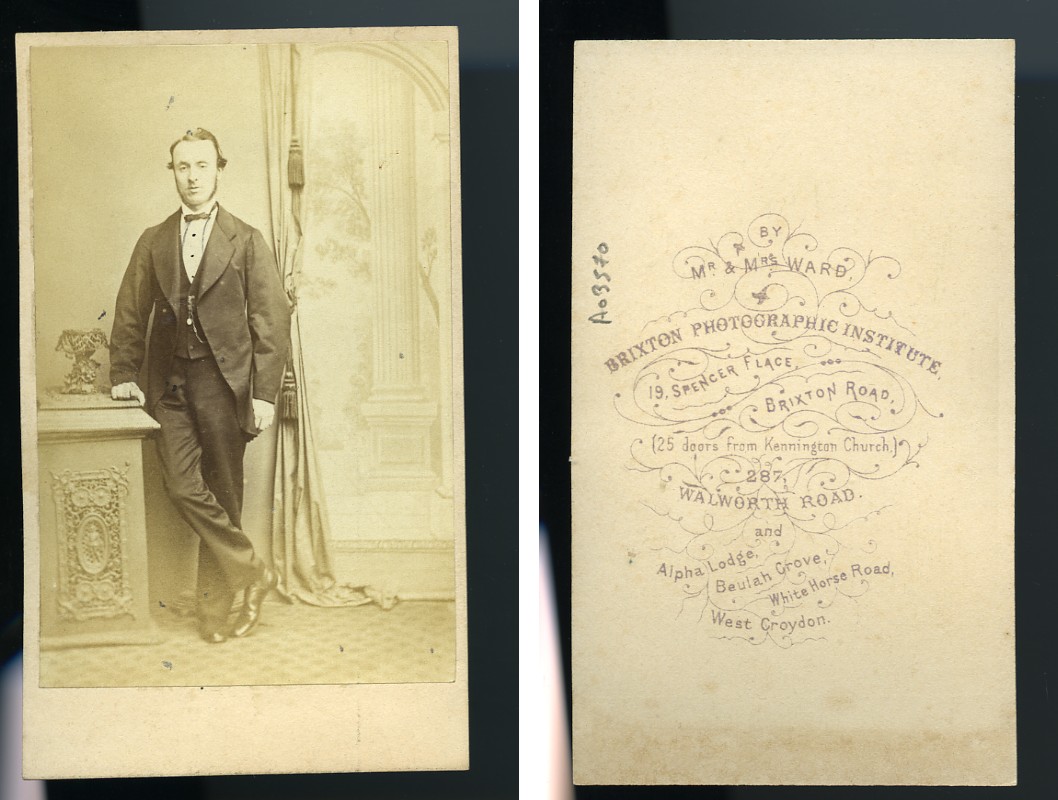 A03570
BY
MR & MRS WARD,
BRIXTON PHOTOGRAPHIC INSTITUTE,
19, SPENCER PLACE,
BRIXTON ROAD,
(25 doors from Kennington Church,)
287,
WALWORTH ROAD.
and
Alpha Lodge,
Beulah Grove,
White Horse Road,
West Croydon.